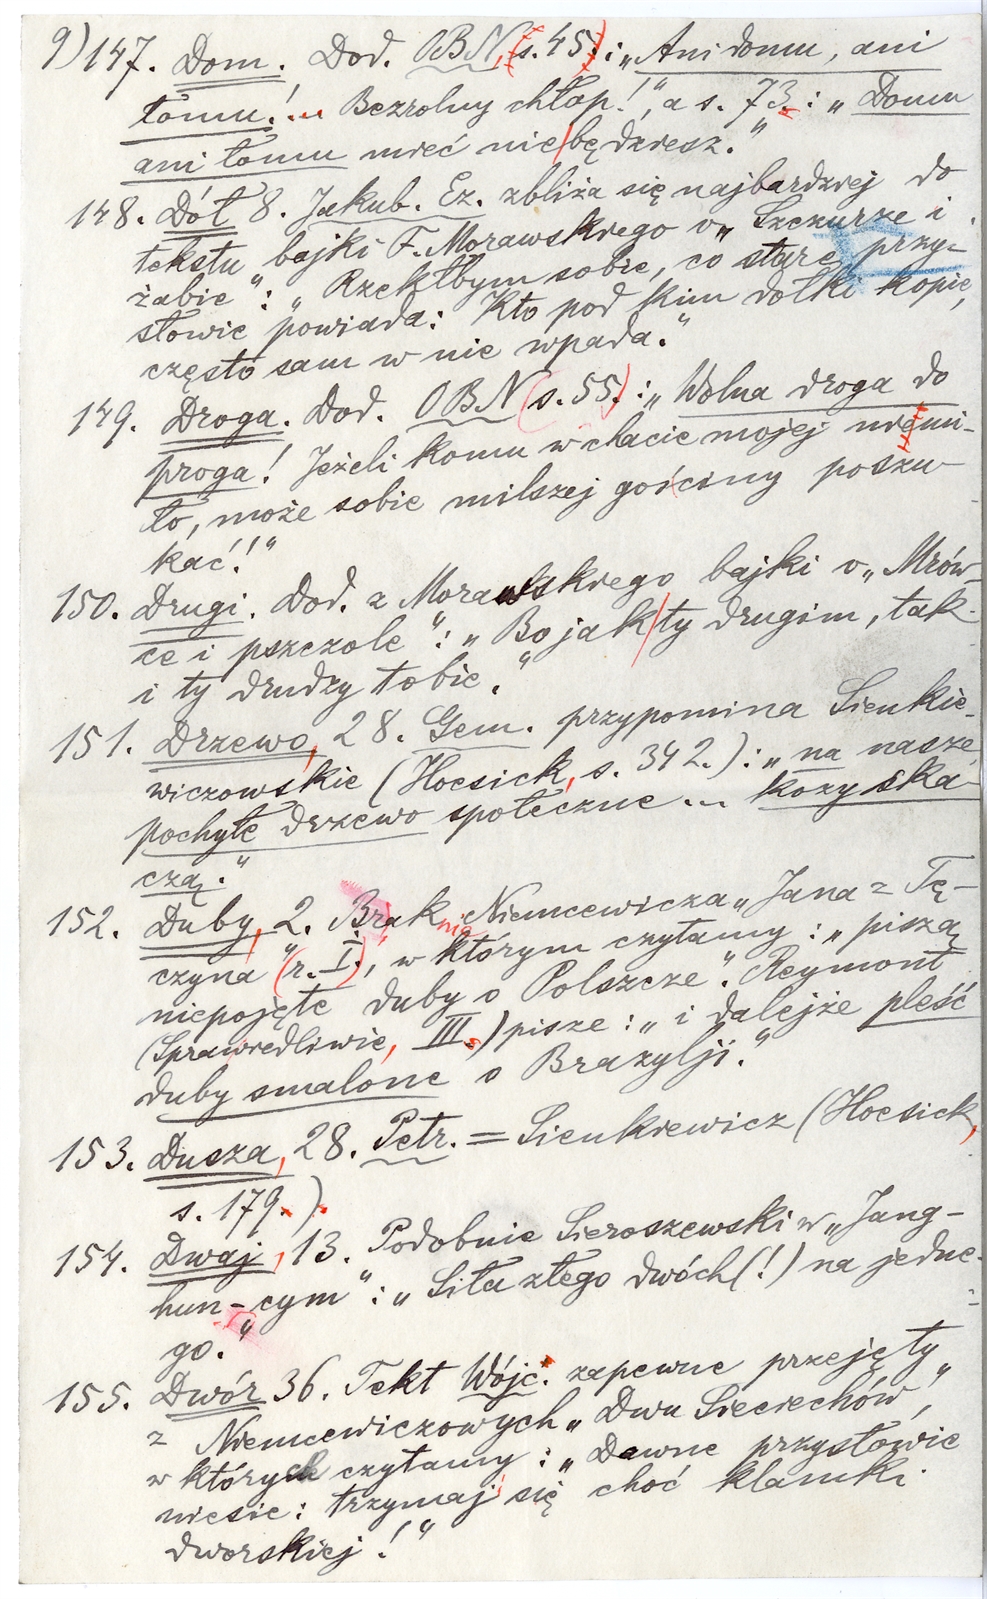 9) 147. Dom. Dod. OBN (s. 45) : „Ani domu, ani
łomu!... Bezrolny chłop!", a s. 73. : „Domu
ani łomu mieć nie będziesz."
148. Dół 8. Jakub. Ez. zbliża się najbardziej do
tekstu bajki F. Morawskiego o „Szczurze i
żabie" : „Rzekłbym sobie, co stare przy-
słowie powiada: Kto pod kim dołki kopie,
często sam w nie wpada."
149. Droga. Dod. OBN (s. 55.) : „Wolna droga do
proga! Jeżeli komu w chacie mojej niemi-
ło, może sobie milszej gościny poszu-
kać!"
150. Drugi. Dod. z Morawskiego bajki o „Mrów-
ce i pszczole" : „Bo jak ty drugim, tak
i ty drudzy tobie."
151. Drzewo, 28. Gem. przypomina Sienkie-
wiczowskie (Hoesick, s. 342.) : „na nasze
pochyłe drzewo społeczne ... kozy ska-
czą."
152. Duby, 2. Brak Niemcewicza „Jana z Tę-
czyna" (r. I.), w którym czytamy : „piszą
niepojęte duby o Polszcze". Reymont
(Sprawiedliwie, III.) pisze : „i dalejże pleść
duby smalone o Brazylji."
153. Dusza, 28. Petr. = Sienkiewicz (Hoesick,
s. 179.).
154. Dwaj, 13. Podobnie Sieroszewski w „Jang-
hun-cym" : „Siła złego dwóch (!) na jedne-
go."
155. Dwór 36. Tekt Wójc. zapewne przejęty
z Niemcewiczowych „Dwu Sieciechów",
w których czytamy : „Dawne przysłowie
niesie: trzymaj się choć klamki
dworskiej!"